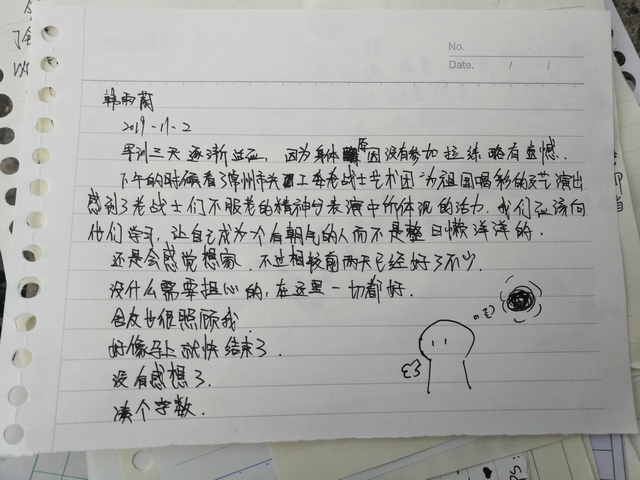 No.
Date. / /
韩雨蔚
2019-11-2
军训三天 逐渐适应, 因为身体原因没有参加拉练 略有遗憾.
下午的时候看了常州市关工委老战士艺术团"为祖国喝彩的文艺演出
感到了老战士们不服老的精神与表演中所体现的活力. 我们应该向
他们学习, 让自己成为个有朝气的人而不是整日懒洋洋的.
还是会感觉想家. 不过相较前两天已经好了不少.
没什么需要担心的, 在这里一切都好.
舍友也很照顾我.
好像马上就快结束了.
没有感想了.
凑个字数.